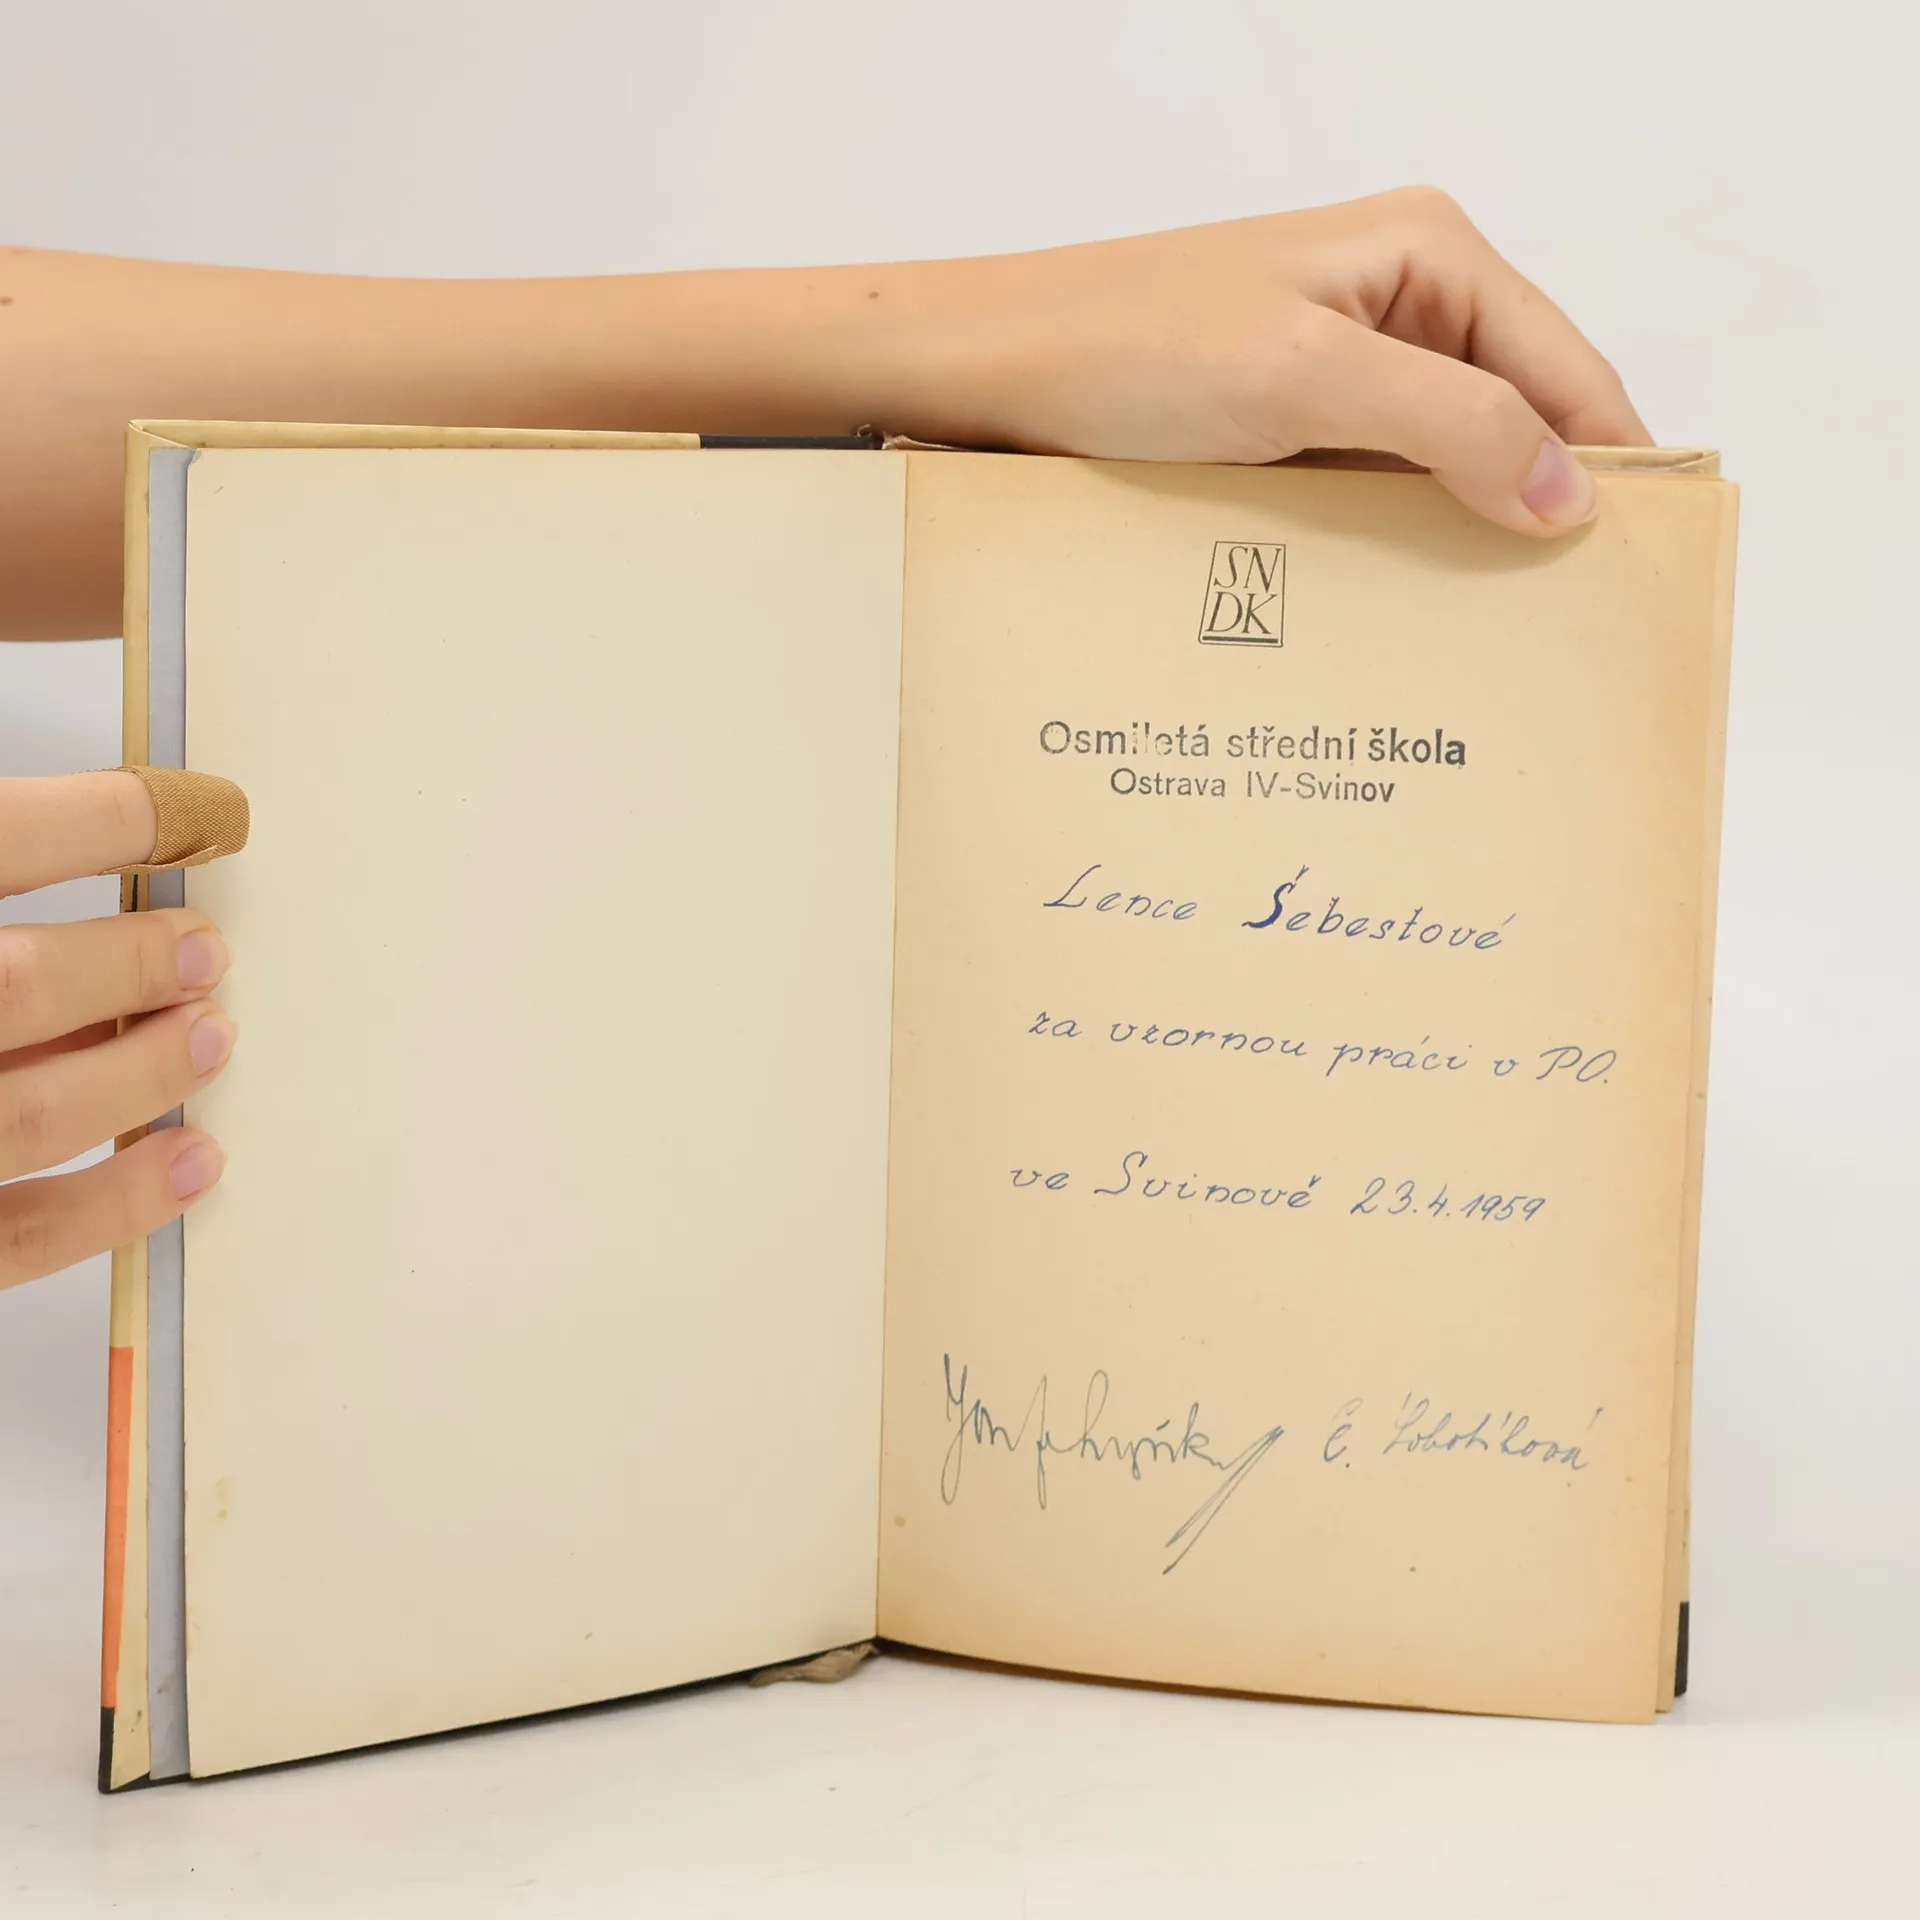 SN
DK
Osmiletá střední škola
Ostrava IV-Svinov
Lence Šebestové
za vzornou práci v PO.
ve Svinově 23.4.1959